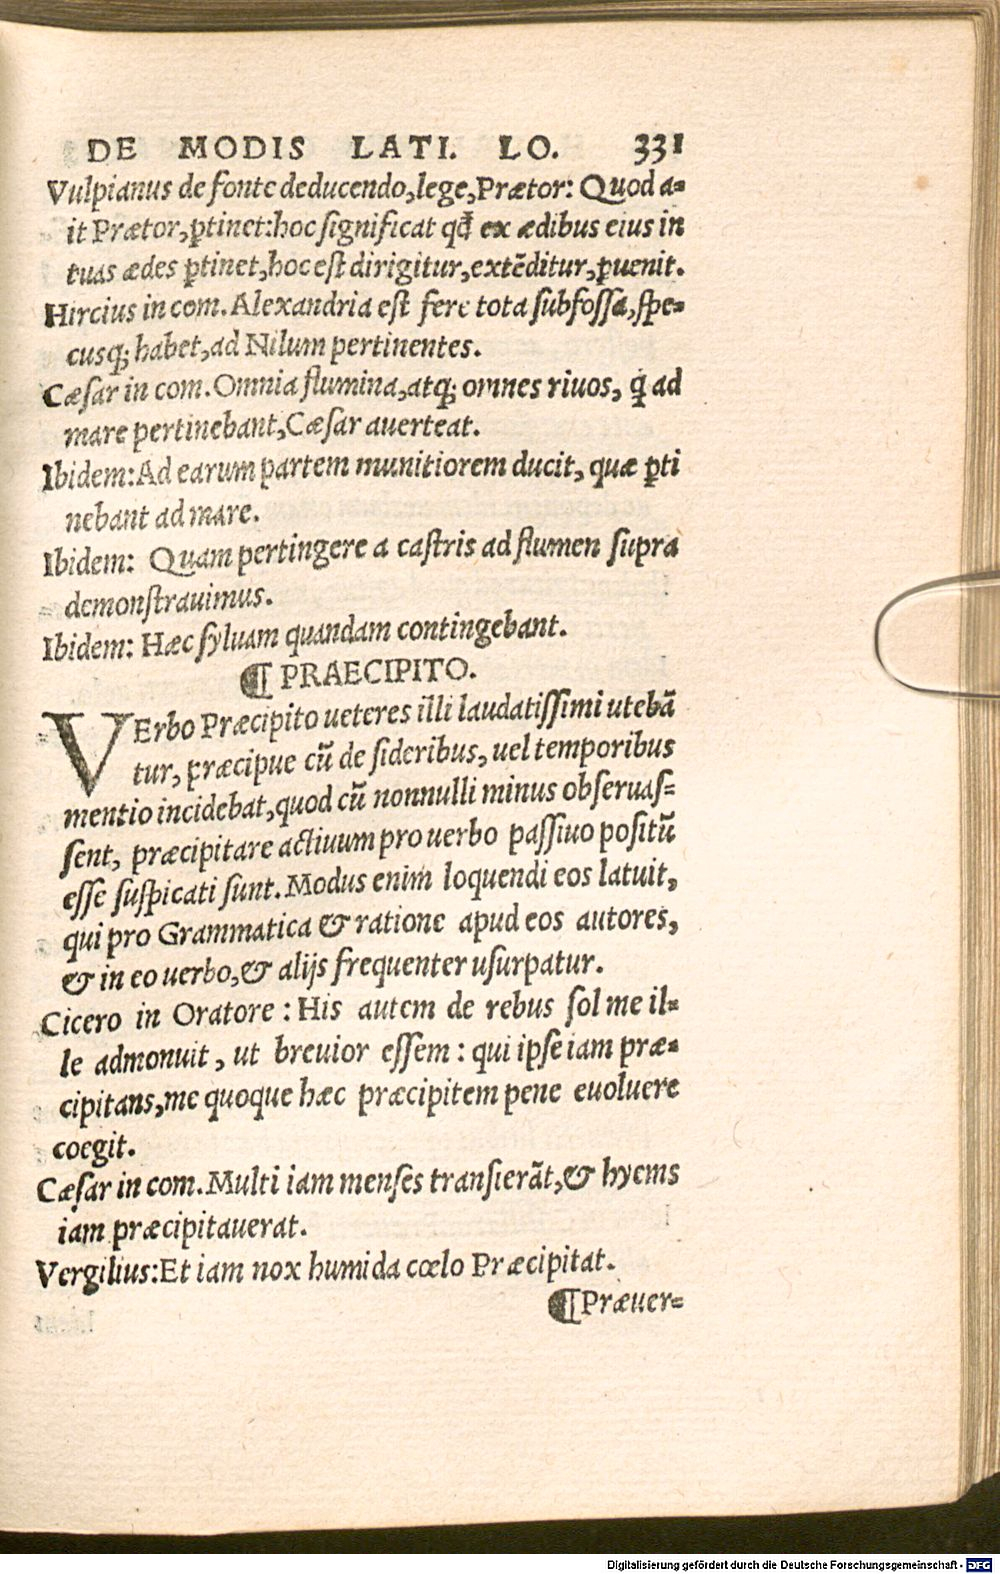 DE MODIS LATI. LO. 331
Vulpianus de fonte deducendo, lege, Prætor: Quod a=
it Prætor, ꝑtinet: hoc significat qđ ex ædibus eius in
tuas ædes ꝑtinet, hoc est dirigitur, extẽditur, ꝑuenit.
Hircius in com. Alexandria est fere tota subfossa, spe=
cusq; habet, ad Nilum pertinentes.
Cæsar in com. Omnia flumina, atq; omnes riuos, q̃ ad
mare pertinebant, Cæsar auerteat.
Ibidem: Ad earum partem munitiorem ducit, quæ ꝑti
nebant ad mare.
Ibidem: Quam pertingere a castris ad flumen supra
demonstrauimus.
Ibidem: Hæc syluam quandam contingebant.
¶ PRAECIPITO.
VErbo Præcipito ueteres illi laudatissimi utebã
tur, præcipue cũ de sideribus, uel temporibus
mentio incidebat, quod cũ nonnulli minus obseruas=
sent, præcipitare actiuum pro uerbo passiuo positũ
esse suspicati sunt. Modus enim loquendi eos latuit,
qui pro Grammatica & ratione apud eos autores,
& in eo uerbo, & alijs frequenter usurpatur.
Cicero in Oratore: His autem de rebus sol me il=
le admonuit, ut breuior essem: qui ipse iam præ=
cipitans, me quoque hæc præcipitem pene euoluere
coegit.
Cæsar in com. Multi iam menses transierãt, & hyems
iam præcipitauerat.
Vergilius: Et iam nox humida cœlo Præcipitat.
¶ Præuer=
Digitalisierung gefördert durch die Deutsche Forschungsgemeinschaft - DFG